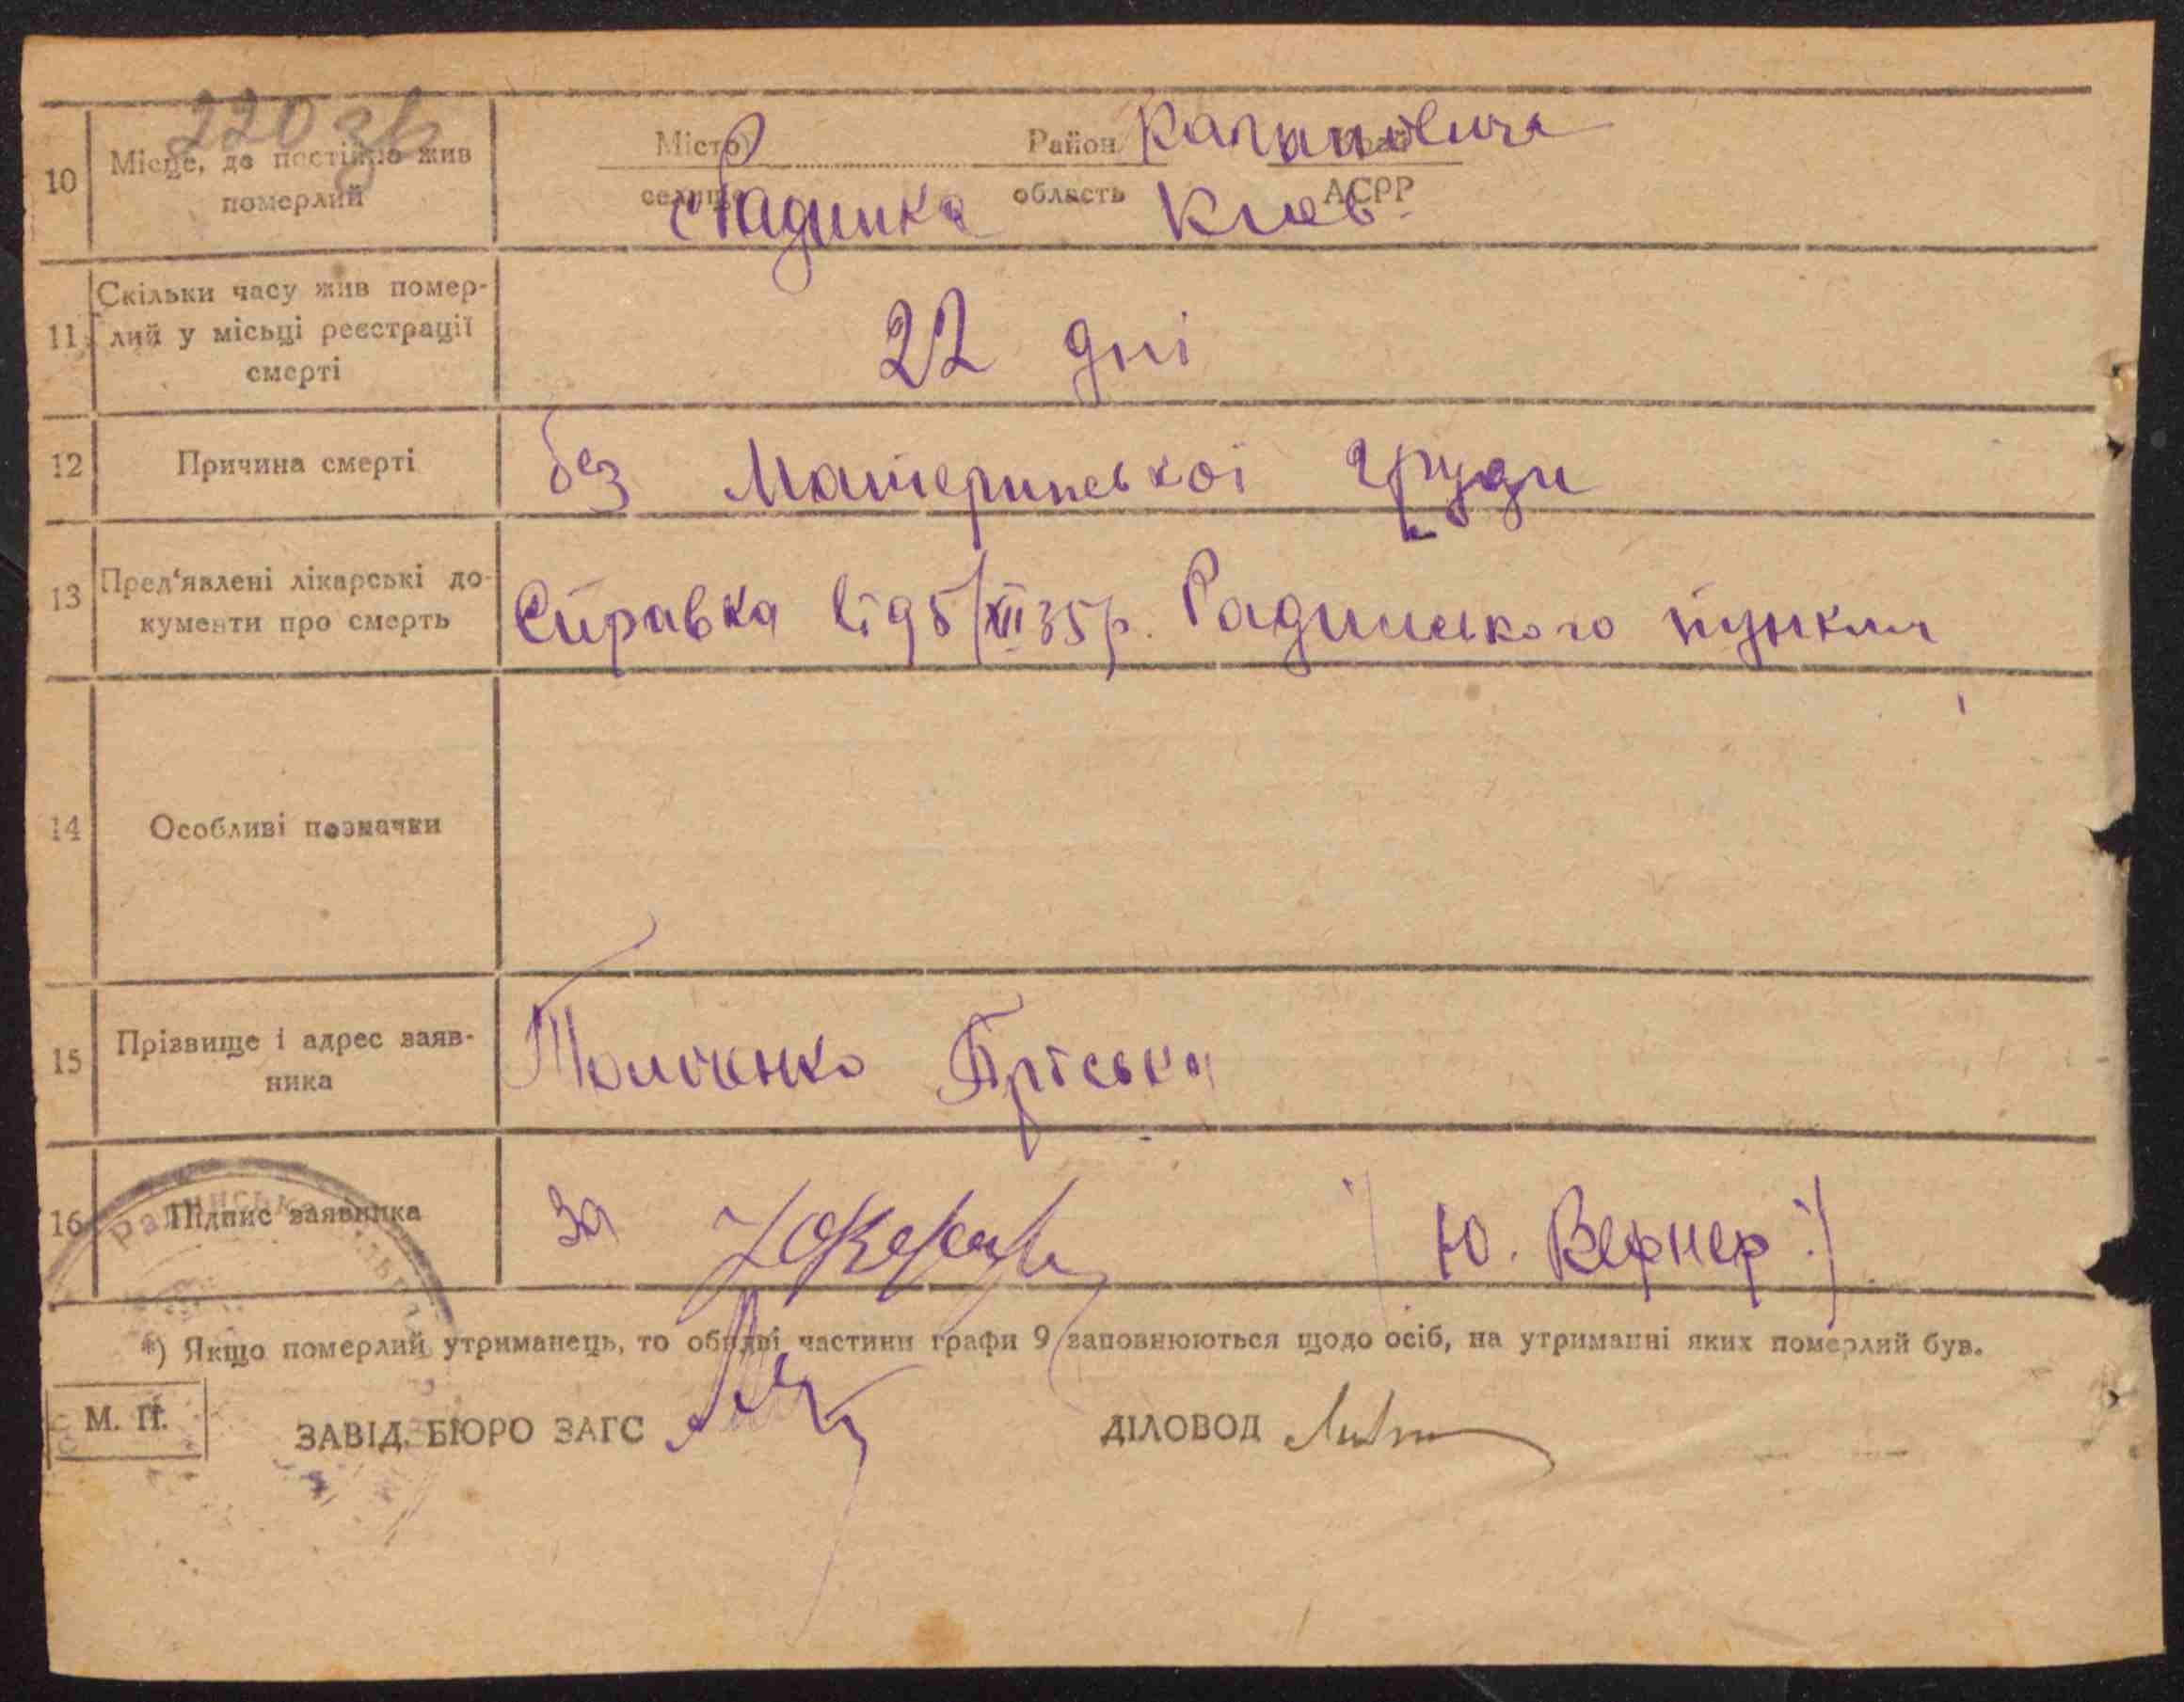 220 зв
10 Місце, де постійно жив Місто Район Кагановича край
померлий селище с Радинка область Київ. АСРР
11 Скільки часу жив помер-
лий у місьці реєстрації 22 дні
смерті
12 Причина смерті без Материнської груди
13 Пред'явлені лікарські до-
кументи про смерть Справка від 5/XII 35 р. Радинського пункта
14 Особливі позначки
15 Прізвище і адрес заяв-
ника Пріська
16 Підпис заявника за Ю. Вернер
*) Якщо померлий утриманець, то обидві частини графи 9 заповнюються щодо осіб, на утриманні яких померлий був.
М. П. ЗАВІД. БЮРО ЗАГС ДІЛОВОД